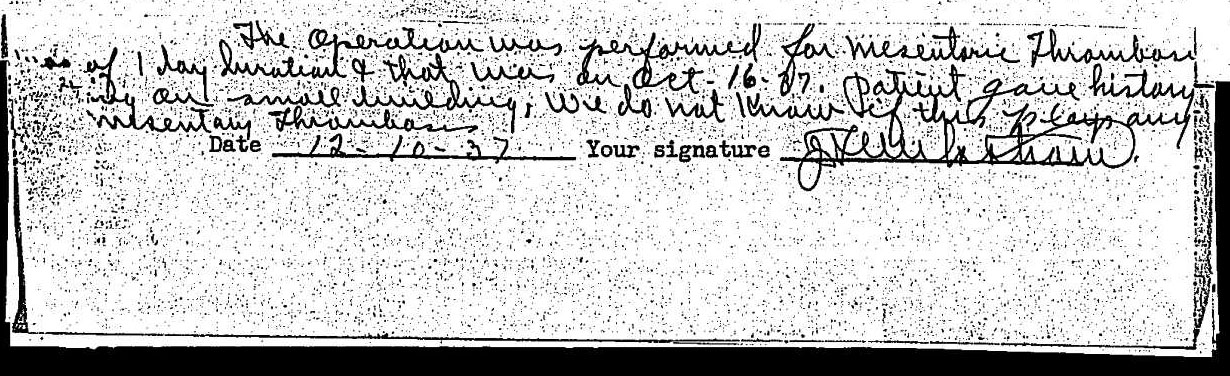 The Operation was performed for Mesenteric Thrombosi
of 1 day duration & that was on Oct-16-37. Patient gave history
on small building, we do not know if this plays any
mesentary Thrombosis
Date 12-10-37 Your signature